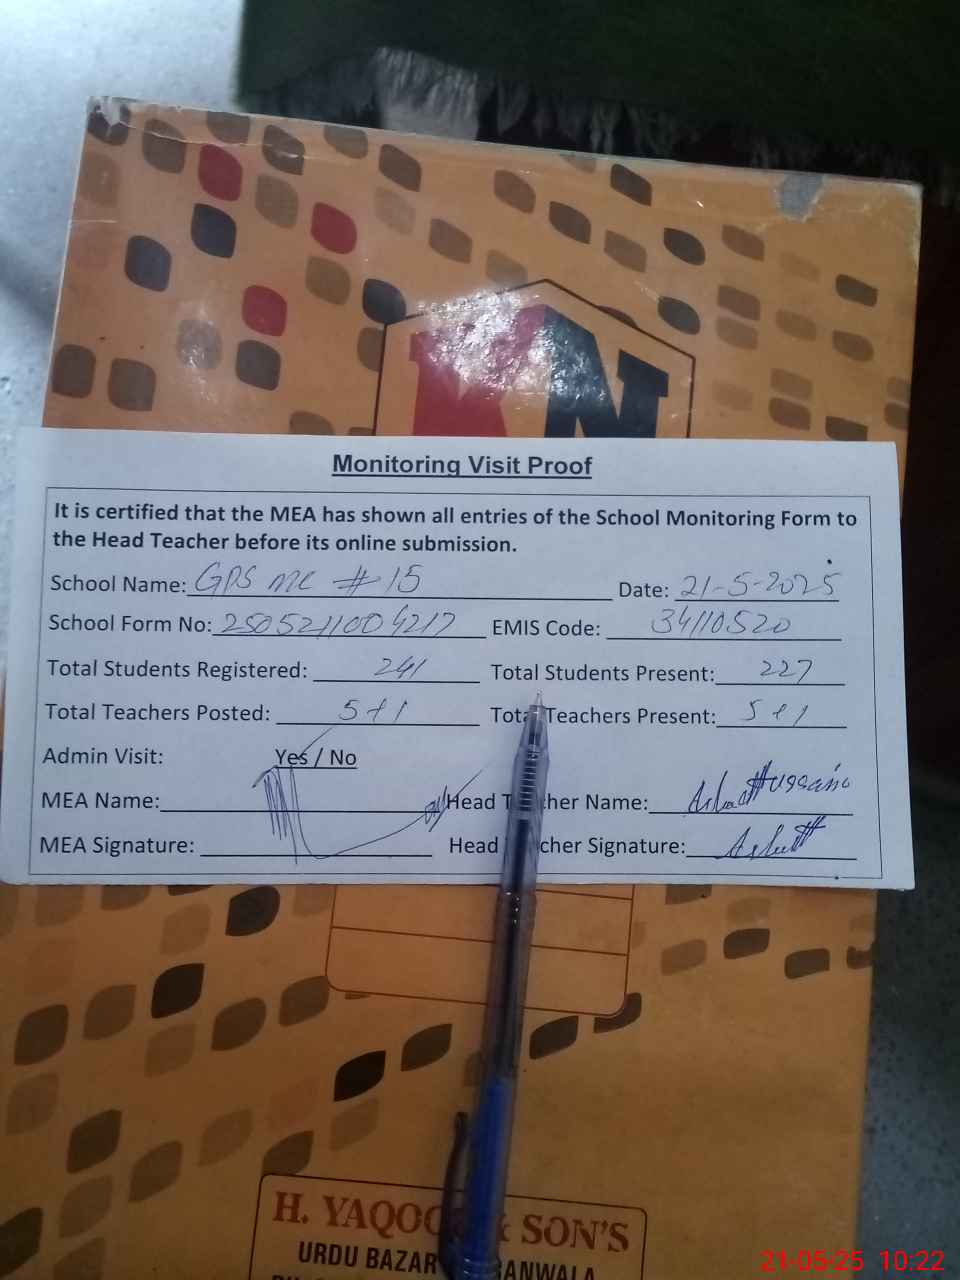 N
Monitoring Visit Proof
It is certified that the MEA has shown all entries of the School Monitoring Form to
the Head Teacher before its online submission.
School Name: GPS MC # 15 Date: 21-5-2025
School Form No: 2505211004217 EMIS Code: 34110520
Total Students Registered: 241 Total Students Present: 227
Total Teachers Posted: 5+1 Total Teachers Present: 5+1
Admin Visit: Yes / No
MEA Name: Head Teacher Name: Hussain
MEA Signature: Head Teacher Signature:
H. YAQOO & SON'S
URDU BAZAR ANWALA
21-05-25 10:22